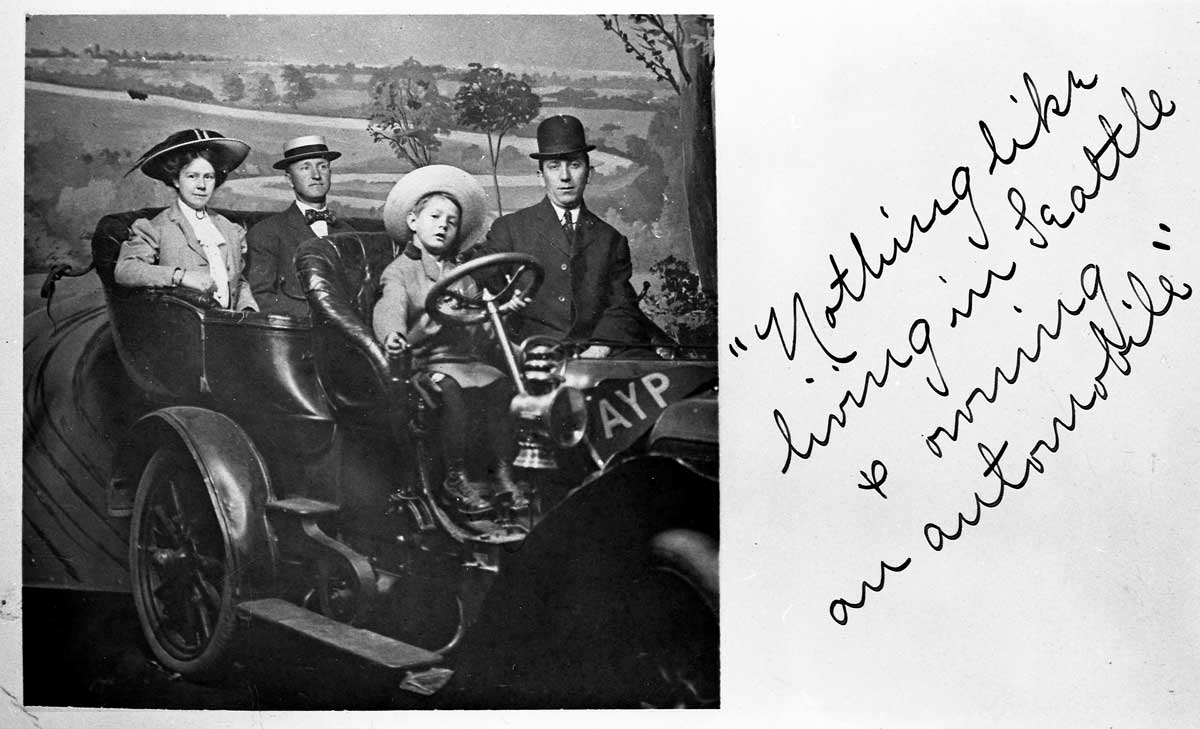 AYP
"Nothing like
living in Seattle
& owning
an automobile"